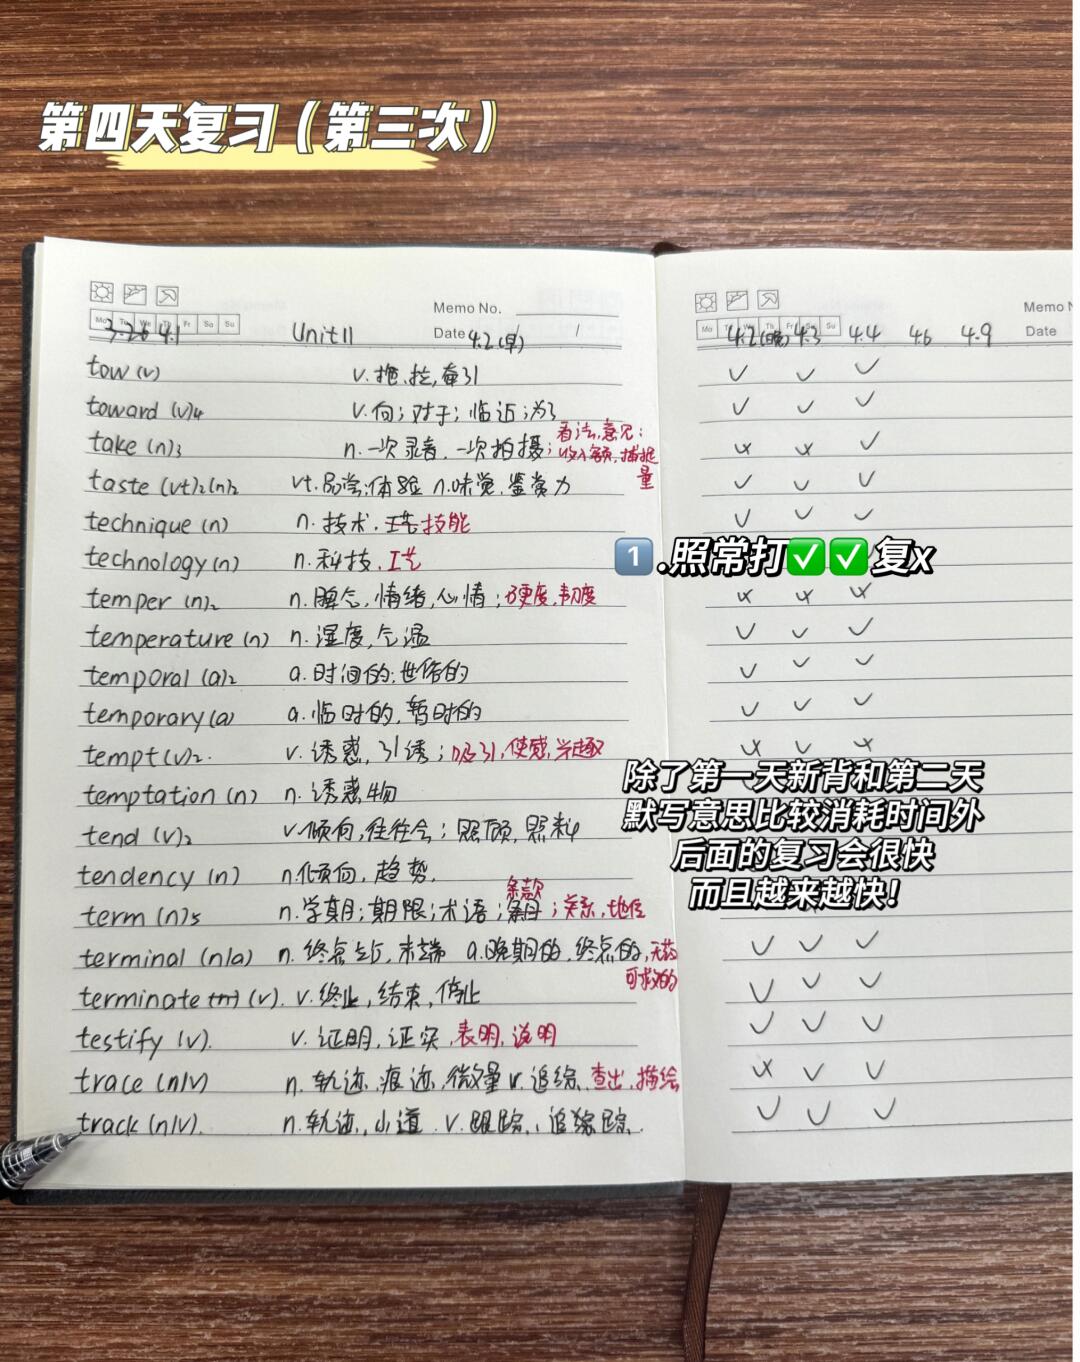 第四天复习（第三次）
Memo No.
Mo Tu We Th Fr Sa Su
3.26 4.1 Unit 11 Date 4.2(早) /
tow (v) v. 拖,拉,牵引
toward (v)4 v. 向；对于；临近；为了
看法,意见；
take (n)3 n. 一次录音,一次拍摄；收入额,捕捉
量
taste (vt)2(n)2 vt. 品尝；体验 n. 味觉,鉴赏力
technique (n) n. 技术, 技能
technology (n) n. 科技,工艺
temper (n)2 n. 脾气,情绪,心情；硬度,韧度
temperature (n) n. 湿度,气温
temporal (a)2 a. 时间的；世俗的
temporary (a) a. 临时的,暂时的
tempt (v)2. v. 诱惑,引诱；吸引,使感兴趣
temptation (n) n. 诱惑物
tend (v)2 v. 倾向,往往会；照顾,照料
tendency (n) n. 倾向,趋势.
条款
term (n)5 n. 学期；期限；术语； ；关系,地位
terminal (n/a) n. 终点站,末端 a. 晚期的,终点的,无药
可救的
terminate (v). v. 终止,结束,停止
testify (v). v. 证明,证实,表明,说明
trace (n/v) n. 轨迹,痕迹,微量 v. 追踪,查出,描绘
track (n/v). n. 轨迹,小道. v. 跟踪,追踪.
Memo
Mo Tu We Th Fr Sa Su
4.2(晚) 4.3 4.4 4.6 4.9 Date
✓ ✓ ✓
✓ ✓ ✓
× × ✓
✓ ✓ ✓
✓ ✓ ✓
1.照常打✅✅复x
× × ×
✓ ✓ ✓
✓ ✓ ✓
✓ ✓ ✓
× ✓ ×
除了第一天新背和第二天
默写意思比较消耗时间外
后面的复习会很快
而且越来越快！
✓ ✓ ✓
✓ ✓ ✓
✓ ✓ ✓
× ✓ ✓
✓ ✓ ✓